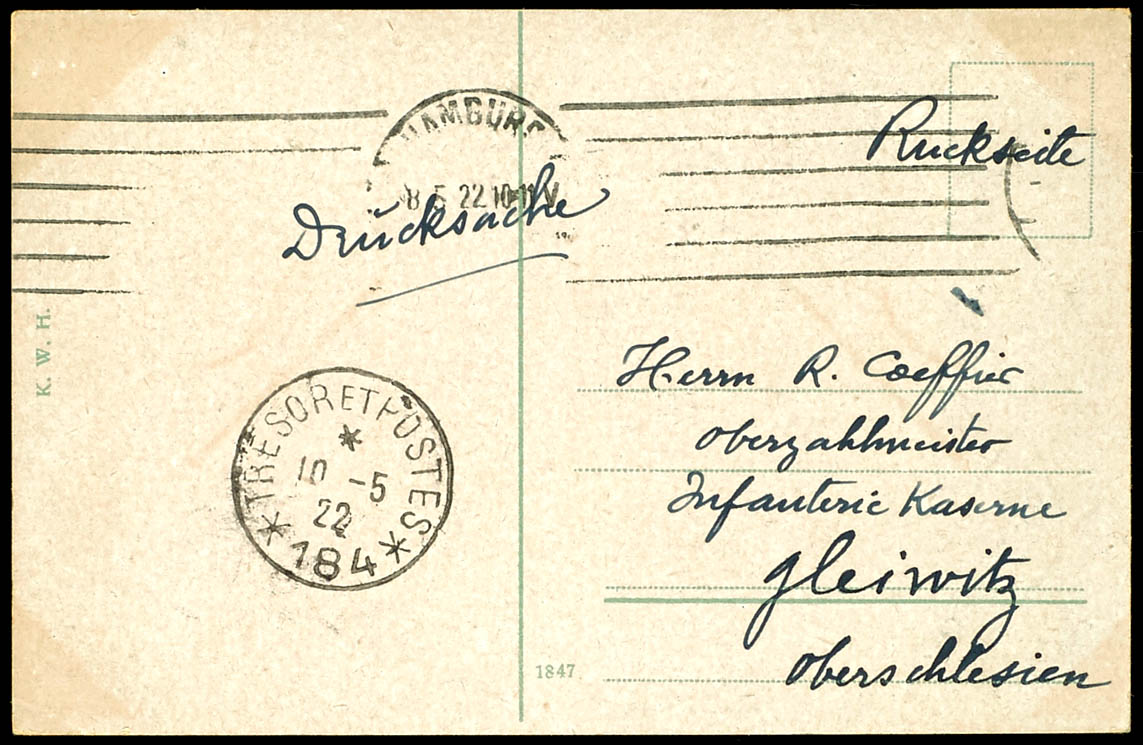 HAMBURG
8 5 22 10-11 V
Rückseite
Drucksache
K. W. H.
TRESOR ET POSTES
10 -5
22
184
Herrn R. Coeffier
Oberzahlmeister
Infanterie Kaserne
Gleiwitz
Oberschlesien
1847